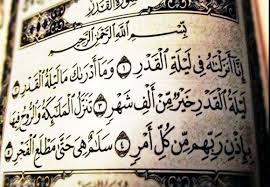 سورة القدر
بِسْمِ اللَّهِ الرَّحْمَٰنِ الرَّحِيمِ
إِنَّا أَنزَلْنَاهُ فِي لَيْلَةِ الْقَدْرِ ١ وَمَا أَدْرَاكَ مَا لَيْلَةُ الْقَدْرِ ٢
لَيْلَةُ الْقَدْرِ خَيْرٌ مِّنْ أَلْفِ شَهْرٍ ٣ تَنَزَّلُ الْمَلَائِكَةُ وَالرُّوحُ فِيهَا
بِإِذْنِ رَبِّهِم مِّن كُلِّ أَمْرٍ ٤ سَلَامٌ هِيَ حَتَّىٰ مَطْلَعِ الْفَجْرِ ٥